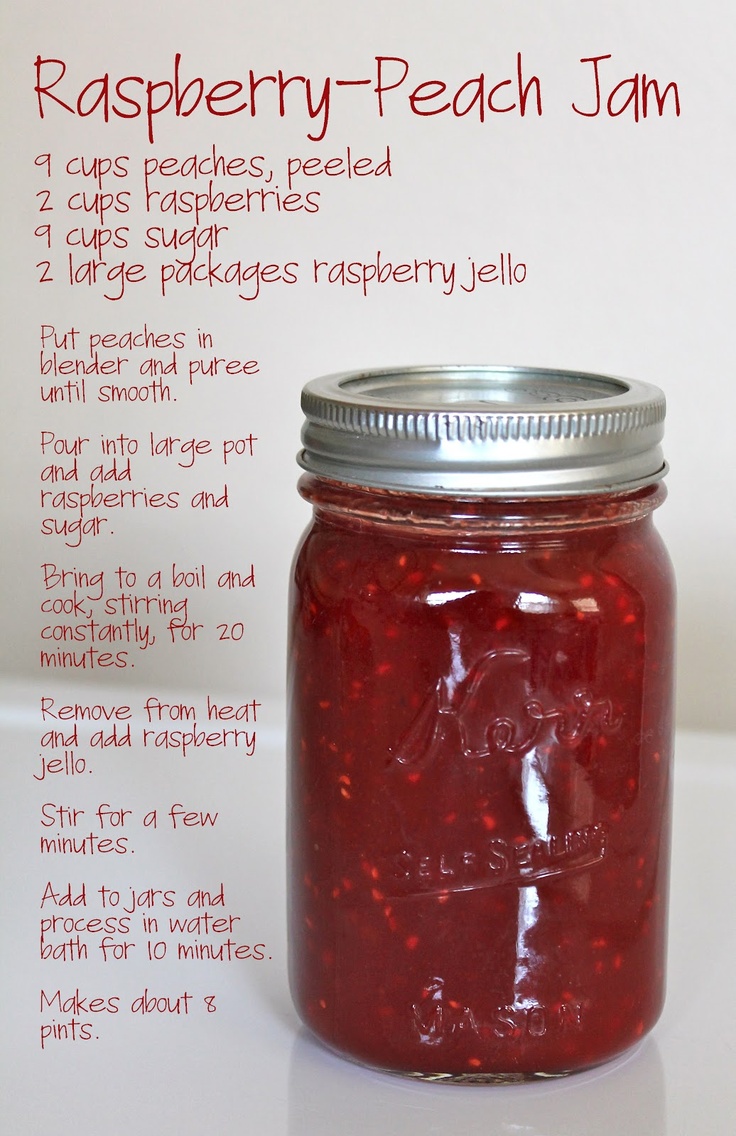 Raspberry-Peach Jam
9 cups peaches, peeled
2 cups raspberries
9 cups sugar
2 large packages raspberry jello
Put peaches in
blender and puree
until smooth.
Pour into large pot
and add
raspberries and
sugar.
Bring to a boil and
cook, stirring
constantly, for 20
minutes.
Remove from heat
and add raspberry
jello.
Stir for a few
minutes.
Add to jars and
process in water
bath for 10 minutes.
Makes about 8
pints.
Kerr
SELF SEALING
MASON